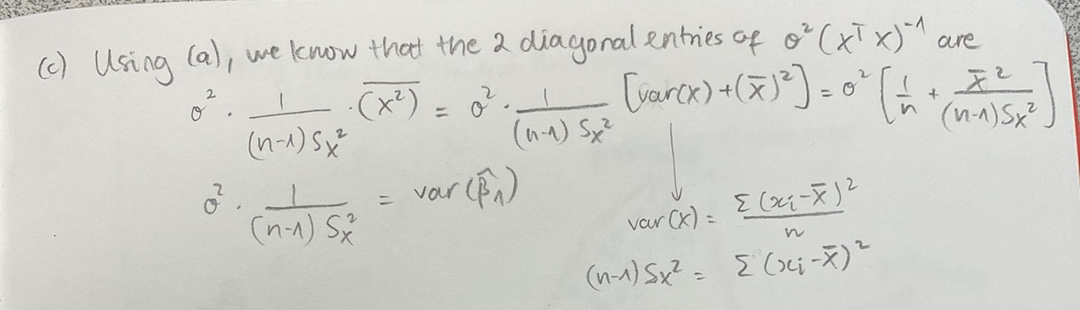 (c) Using (a), we know that the 2 diagonal entries of σ² (xᵀ x)⁻¹ are
σ² · 1/((n-1) Sx²) · \overline{(x²)} = σ² · 1/((n-1) Sx²) [var(x) + (x̄)²] = σ² [1/n + x̄²/((n-1) Sx²)]
σ² · 1/((n-1) Sx²) = var(β̂₁)
var(x) = Σ(xi - x̄)²/n
(n-1) Sx² = Σ(xi - x̄)²